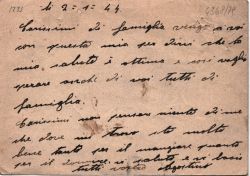 li 2=1=44
Carissimi di famiglia vengo a voi
con questa mia per dirvi che la
mia salute è ottima e così voglio
sperare anche di voi tutti di
famiglia.
Carissimi non pensare niente di me
che dove mi trovo sto molto
bene tanto per il mangiare quanto
per il dormire vi saluto e vi bacio
tutti vostro Agostino